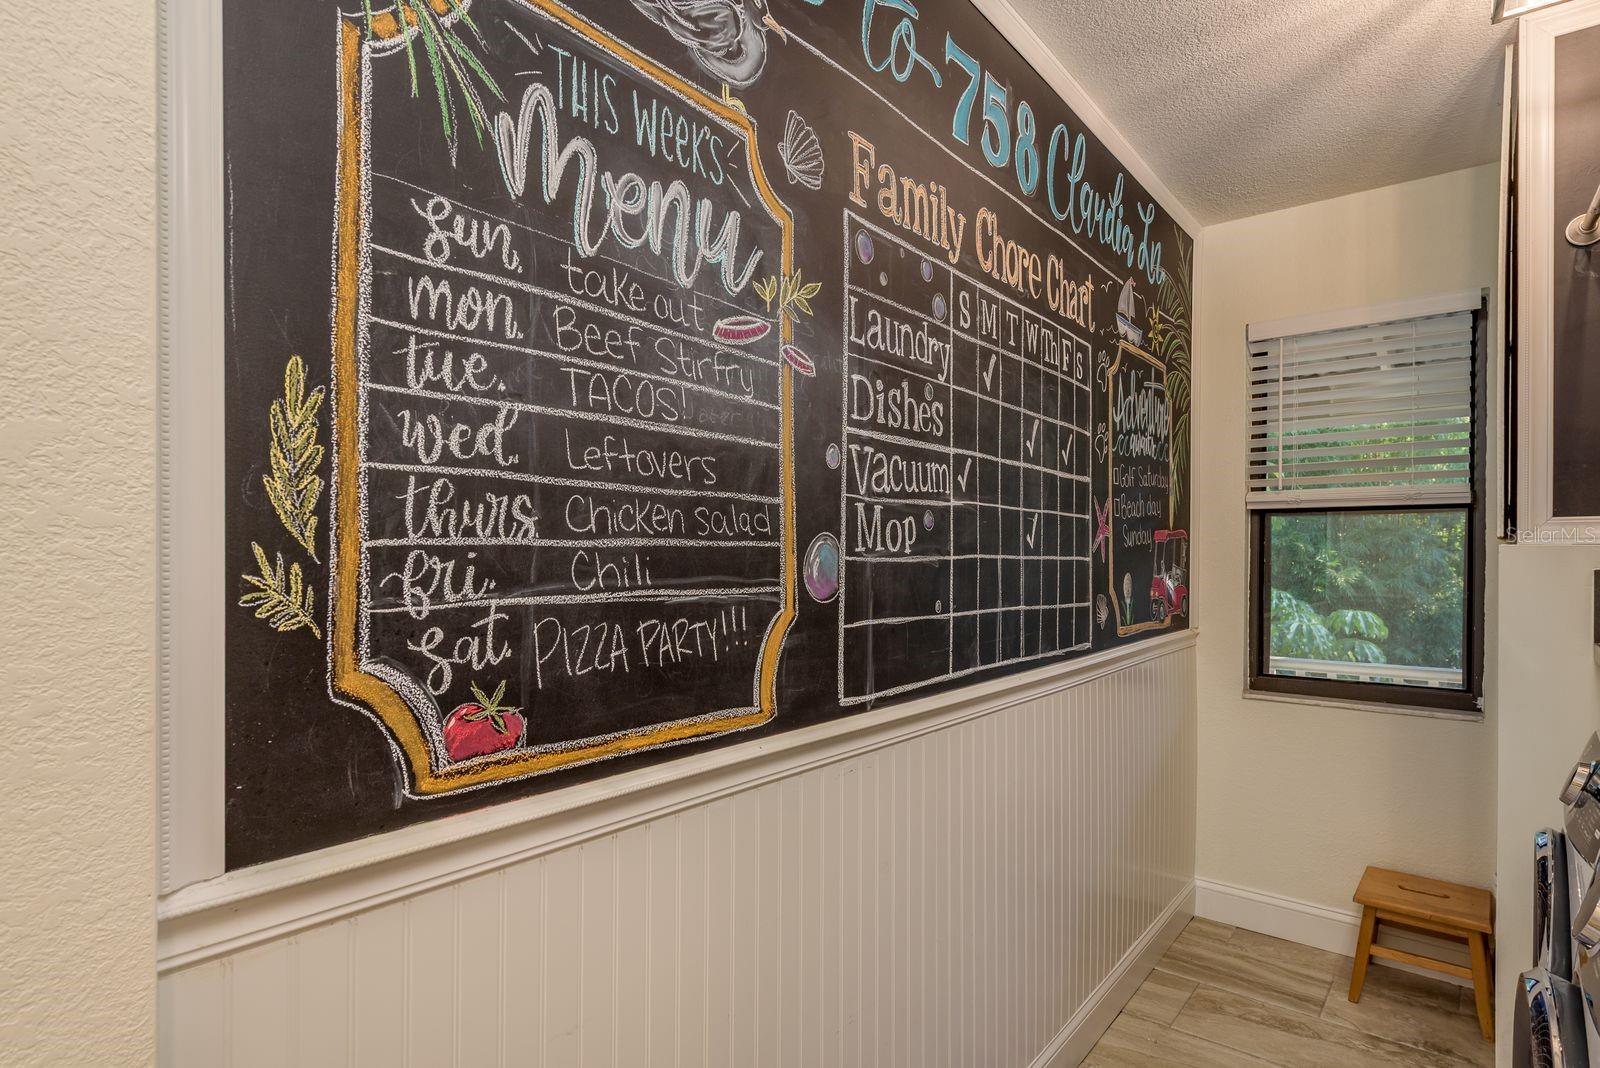 to 758 Claudia Ln
THIS WEEK'S
Menu
Sun. take out
mon. Beef Stirfry
tue. TACOS!
wed. Leftovers
thurs Chicken salad
fri. Chili
sat. PIZZA PARTY!!!
Family Chore Chart
S M T W Th F S
Laundry
Dishes
Vacuum
Mop
Adventure
awaits
Golf Saturday
Beach day
Sunday
Stellar MLS